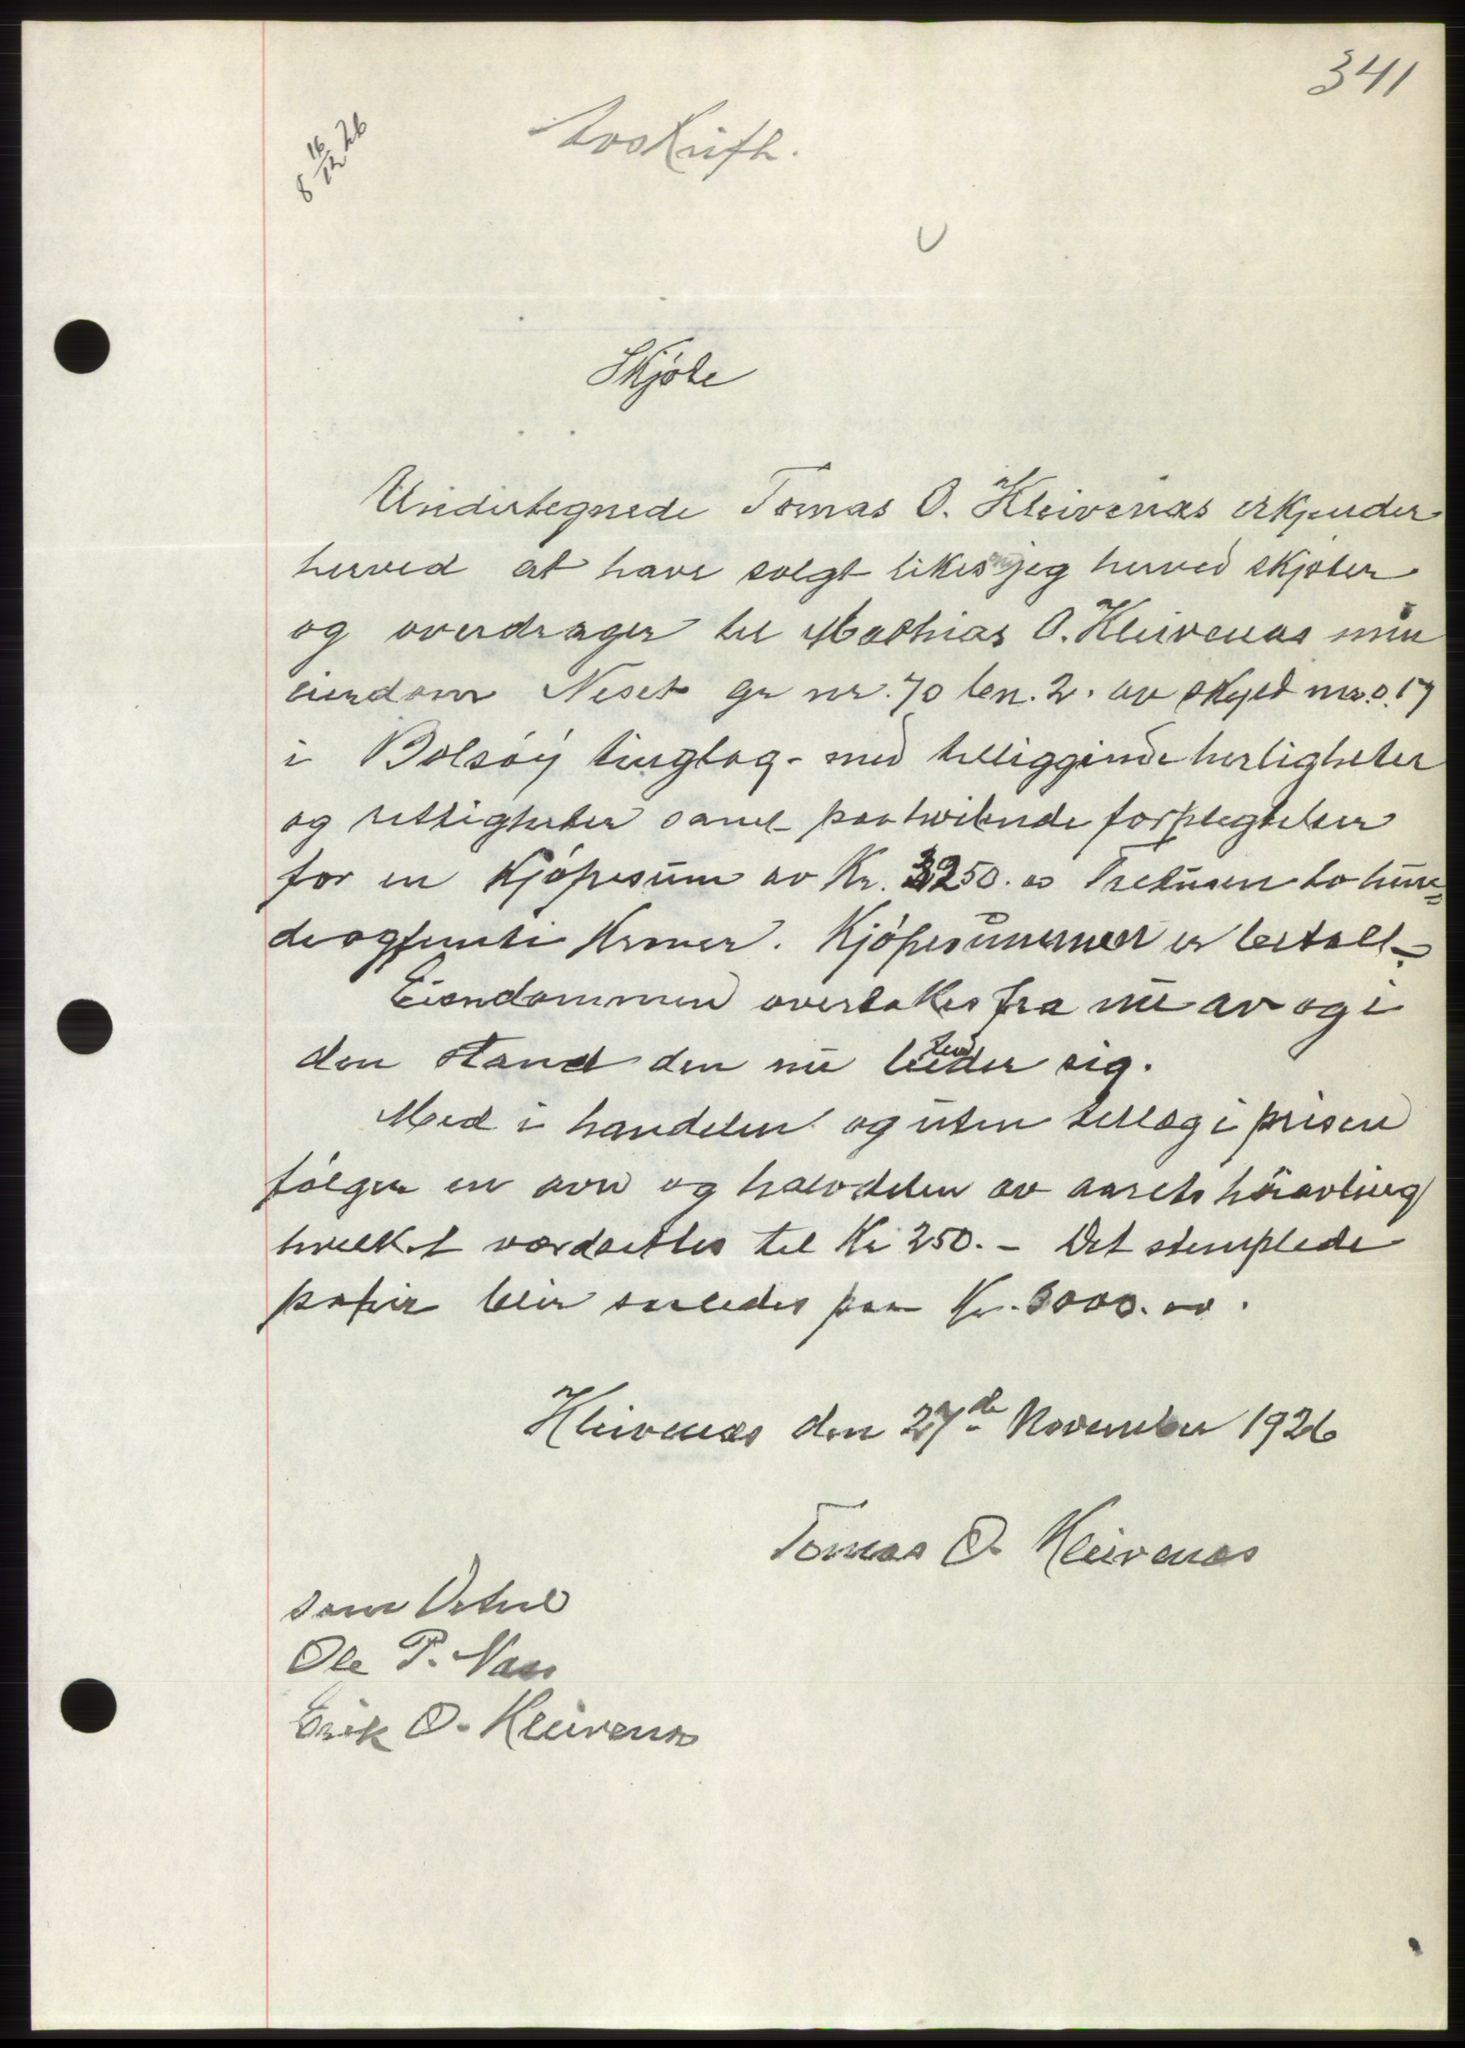 341
8 16/12 26
Avskrift.
Skjöte
Undertegnede Tomas O. Kleivenæs erkjender
herved at have solgt likesom jeg herved skjøter
og overdrager til Mathias O. Kleivenæs min
eiendom Neset gr nr. 70 bn. 2. av skyld mr. 0.17
i Bolsöy tinglag - med tilliggende herligheter
og rettigheter samt paahvilende forplegtelser
for en Kjöpesum av Kr. 3250.00 Tretusen to hun=
deogfemti Kroner. Kjöpesummen er betalt -
Eiendommen overtakes fra nu av og i
den stand den nu befinder sig.
Med i handelen og uten tillæg i prisen
følger en ovn og halvdelen av aarets höiavling
hvilket værdsettes til Kr 250. - Det stemplede
papir blir saaledes paa Kr. 3000.00.
Kleivenæs den 27de November 1926
Tomas O. Kleivenæs
som Vitne
Ole P. Næs
Erik O. Kleivenæs